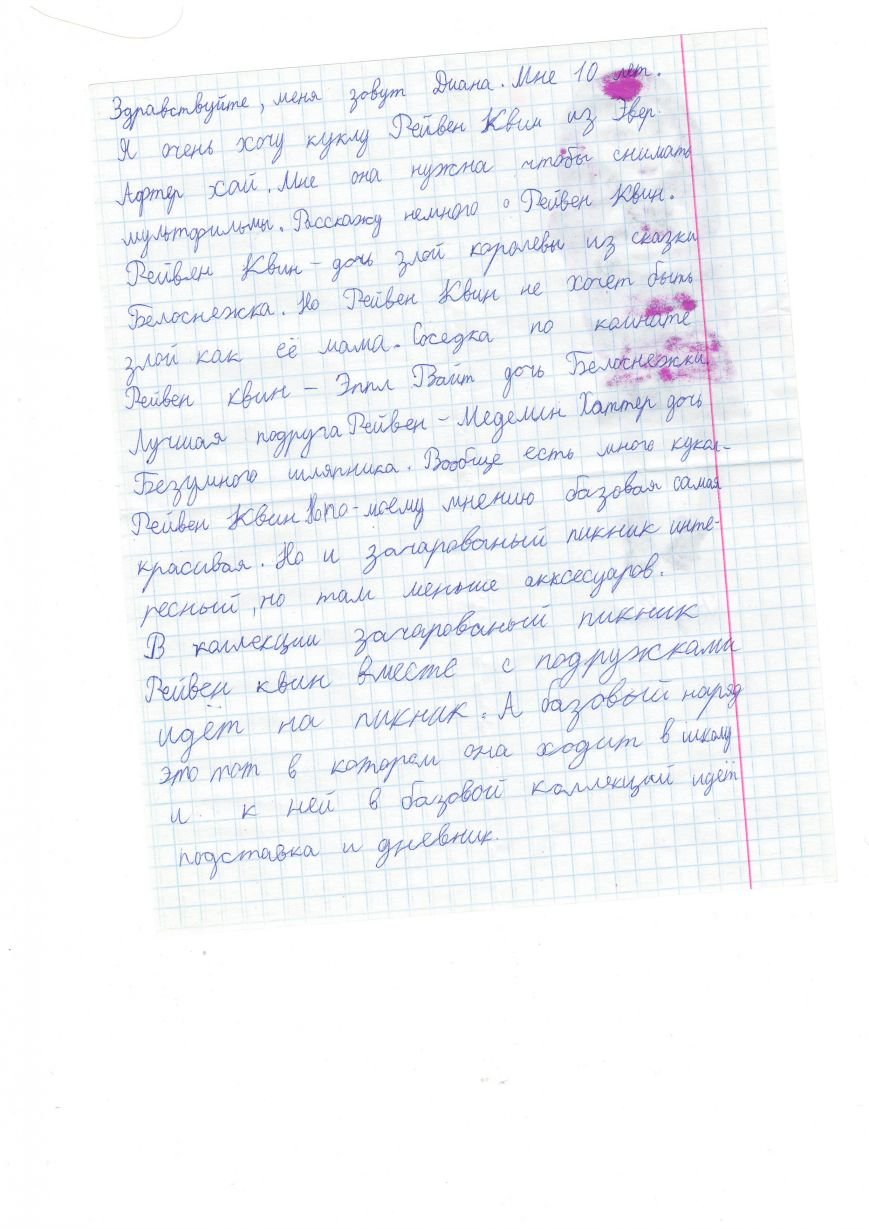 Здравствуйте, меня зовут Диана. Мне 10 лет.
Я очень хочу куклу Рейвен Квин из Эвер
Афтер хай. Мне она нужна чтобы снимать
мультфильмы. Расскажу немного о Рейвен Квин.
Рейвен Квин – дочь злой королевы из сказки
Белоснежка. Но Рейвен Квин не хочет быть
злой как её мама. Соседка по комнате
Рейвен Квин – Эппл Вайт дочь Белоснежки.
Лучшая подруга Рейвен – Меделин Хаттер дочь
Безумного шляпника. Вообще есть много кукол
Рейвен Квин Но по-моему мнению базовая самая
красивая. Но и зачарованный пикник инте-
ресный, но там меньше акксесуаров.
В коллекции зачарованый пикник
Рейвен квин вместе с подружками
идёт на пикник. А базовый наряд
это тот в котором она ходит в школу
и к ней в базовой коллекций идёт
подставка и дневник.